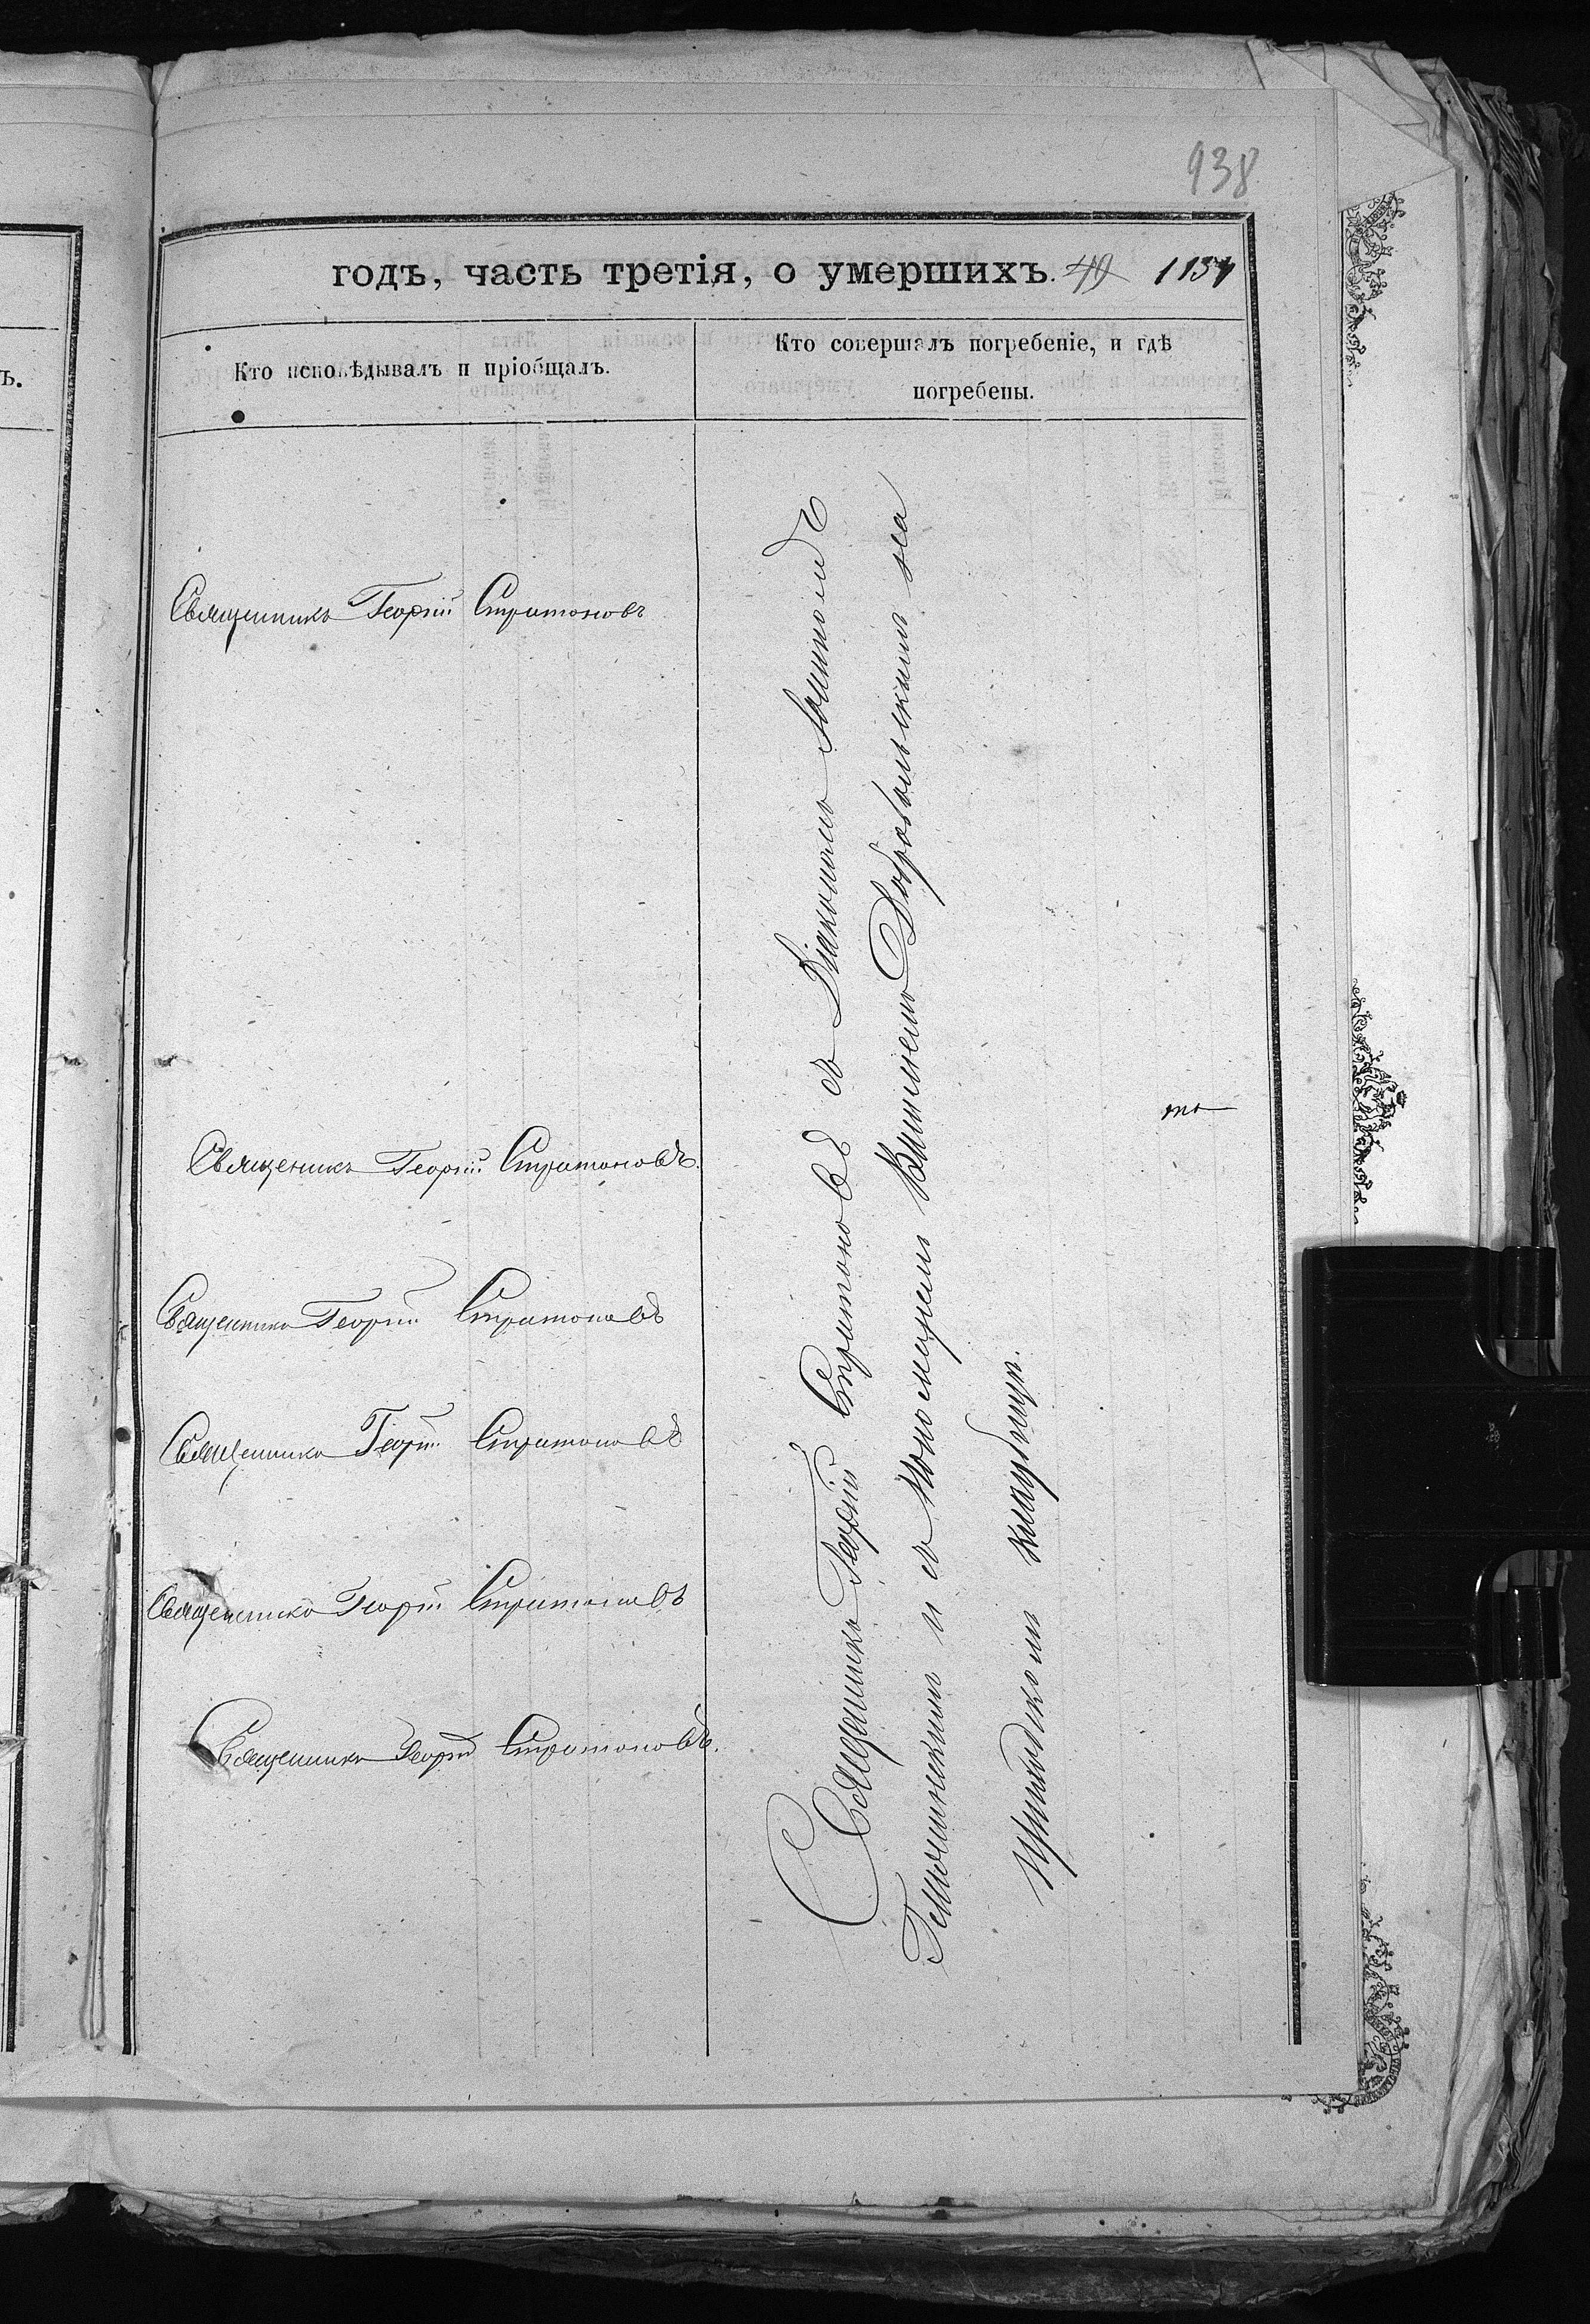 938
годъ, часть третія, о умершихъ. 49 1137
Кто исповѣдывалъ и пріобщалъ.
Кто совершалъ погребеніе, и гдѣ
погребены.
Священникъ Георгій Стратоновъ
Священикъ Георгій Стратоновъ.
Священникъ Георгій Стратоновъ
Священникъ Георгій Стратоновъ
Священникъ Георгій Стратоновъ
Священникъ Георгій Стратоновъ.
Священникъ Георгій Стратоновъ съ Діакономъ
и съ Пономаремъ Добровольскимъ на
Приходскомъ кладбищѣ.
ъ.